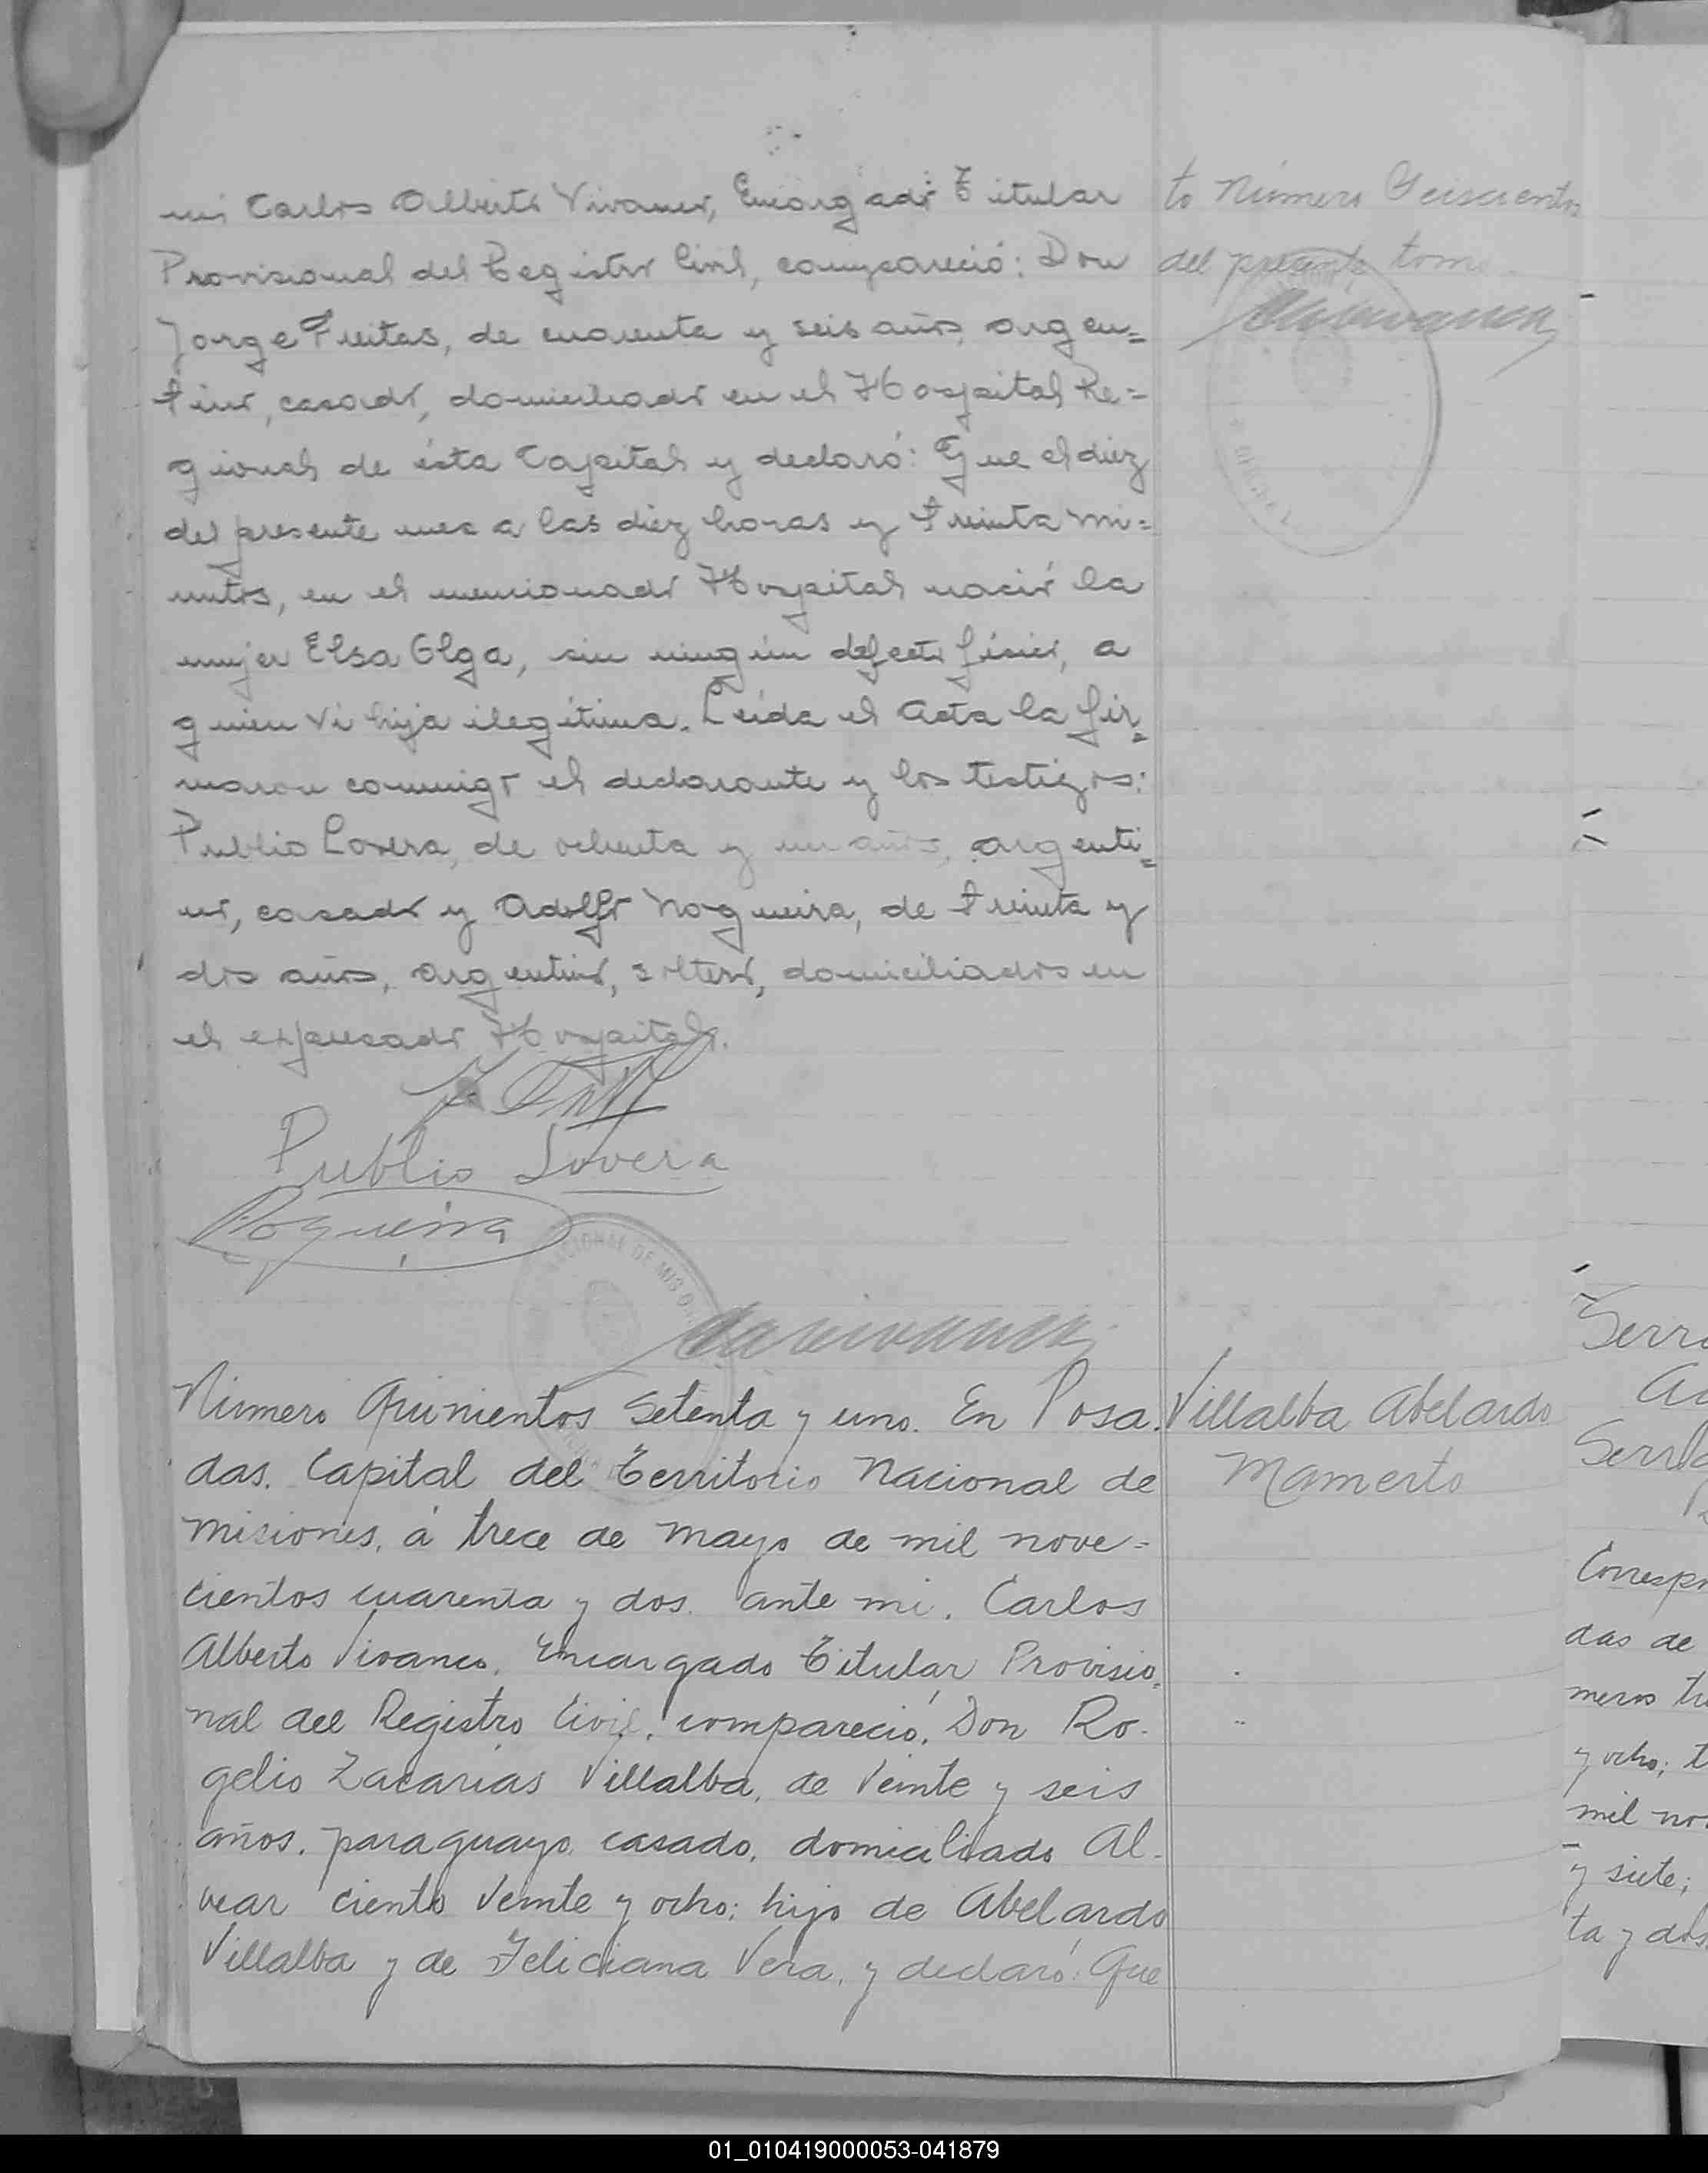 mi Carlos Alberto Vivanco, Encargado Titular
Provisional del Registro Civil, compareció: Don
Jorge Freitas, de cuarenta y seis años, argen=
tino, casado, domiciliado en el Hospital Re=
gional de ésta Capital y declaró: Que el diez
del presente mes a las diez horas y treinta mi=
nutos, en el mencionado Hospital nació la
mujer Elsa Olga, sin ningún defecto físico, a
quien vi hija ilegítima. Leída el Acta la fir=
maron conmigo el declarante y los testigos:
Publio Lovera, de ochenta y un años, argenti=
no, casado y Adolfo Nogueira, de treinta y
dos años, argentino, soltero, domiciliados en
el expresado Hospital.
Publio Lovera
Nogueira
CIONAL DE MISIO
to Número Seiscientos
del presente tomo.
Número Quinientos Setenta y uno. En Posa.
das. Capital del Territorio Nacional de
Misiones, á trece de Mayo de mil nove=
cientos cuarenta y dos. ante mi. Carlos
Alberto Vivanco. Encargado Titular Provisio=
nal del Registro Civil, compareció: Don Ro-
gelio Zacarias Villalba, de Veinte y seis
años. paraguayo, casado, domiciliado Al-
vear ciento Veinte y ocho; hijo de Abelardo
Villalba y de Feliciana Vera, y declaró: Que
Villalba Abelardo
Mamerto
Serr
Correspo
das de
meros tr
y ocho; t
mil no
y siete;
ta y dos
01_010419000053-041879